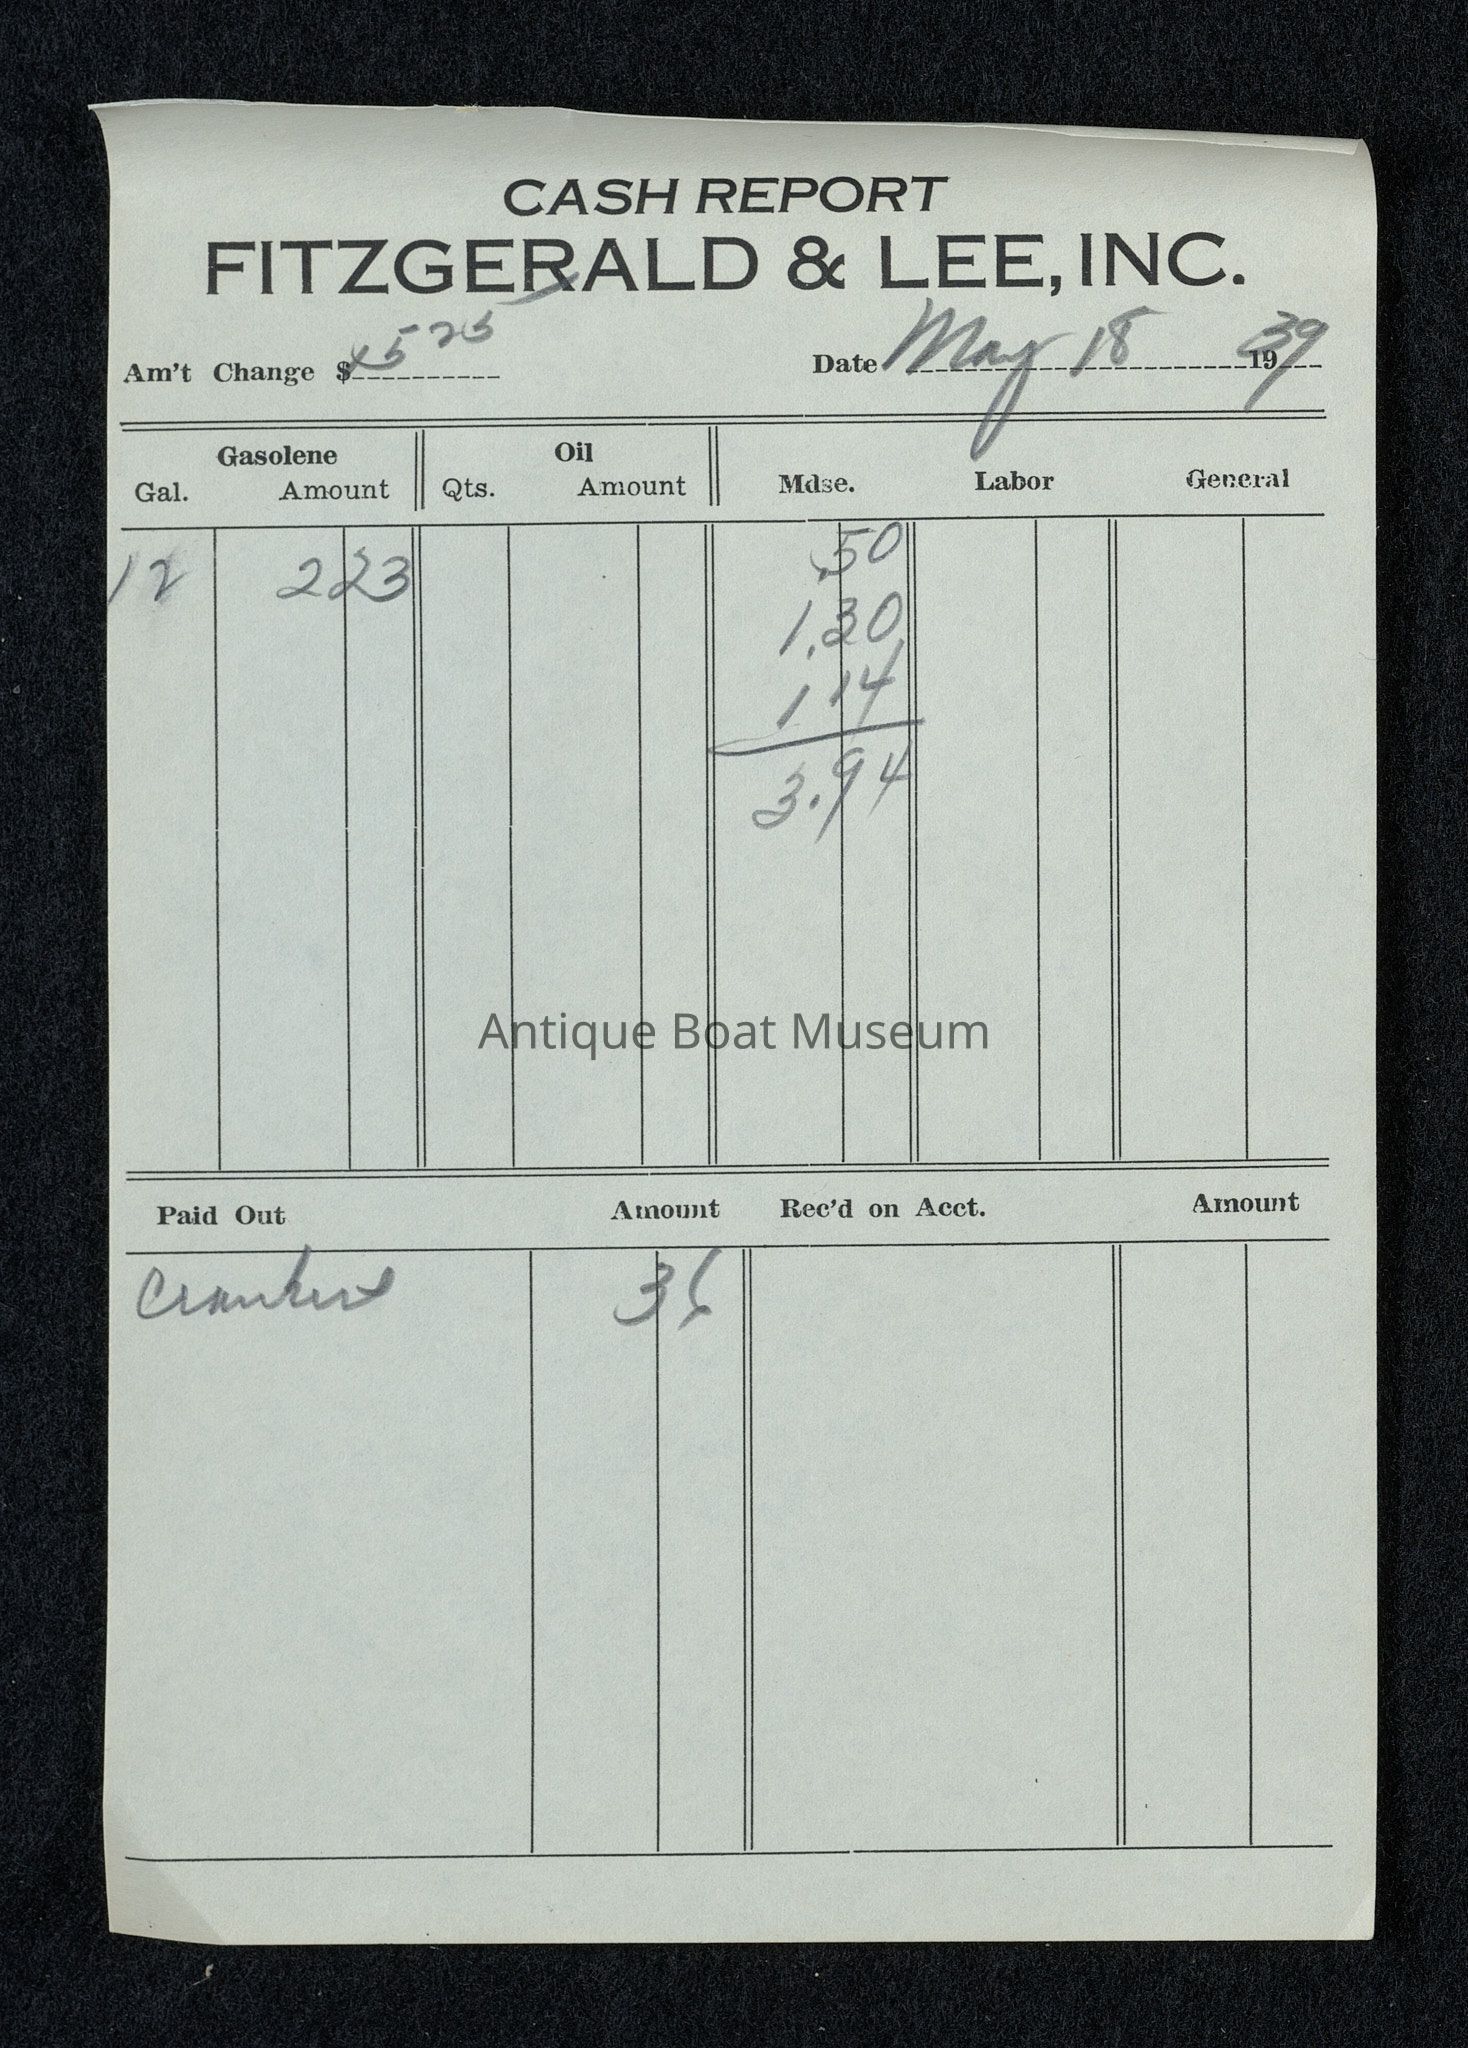 CASH REPORT
FITZGERALD & LEE, INC.
Am't Change $ 45 25 Date May 18 1939
Gasolene Oil
Gal. Amount Qts. Amount Mdse. Labor General
12 2 23 .50
1.30
1 14
3.94
Antique Boat Museum
Paid Out Amount Rec'd on Acct. Amount
36